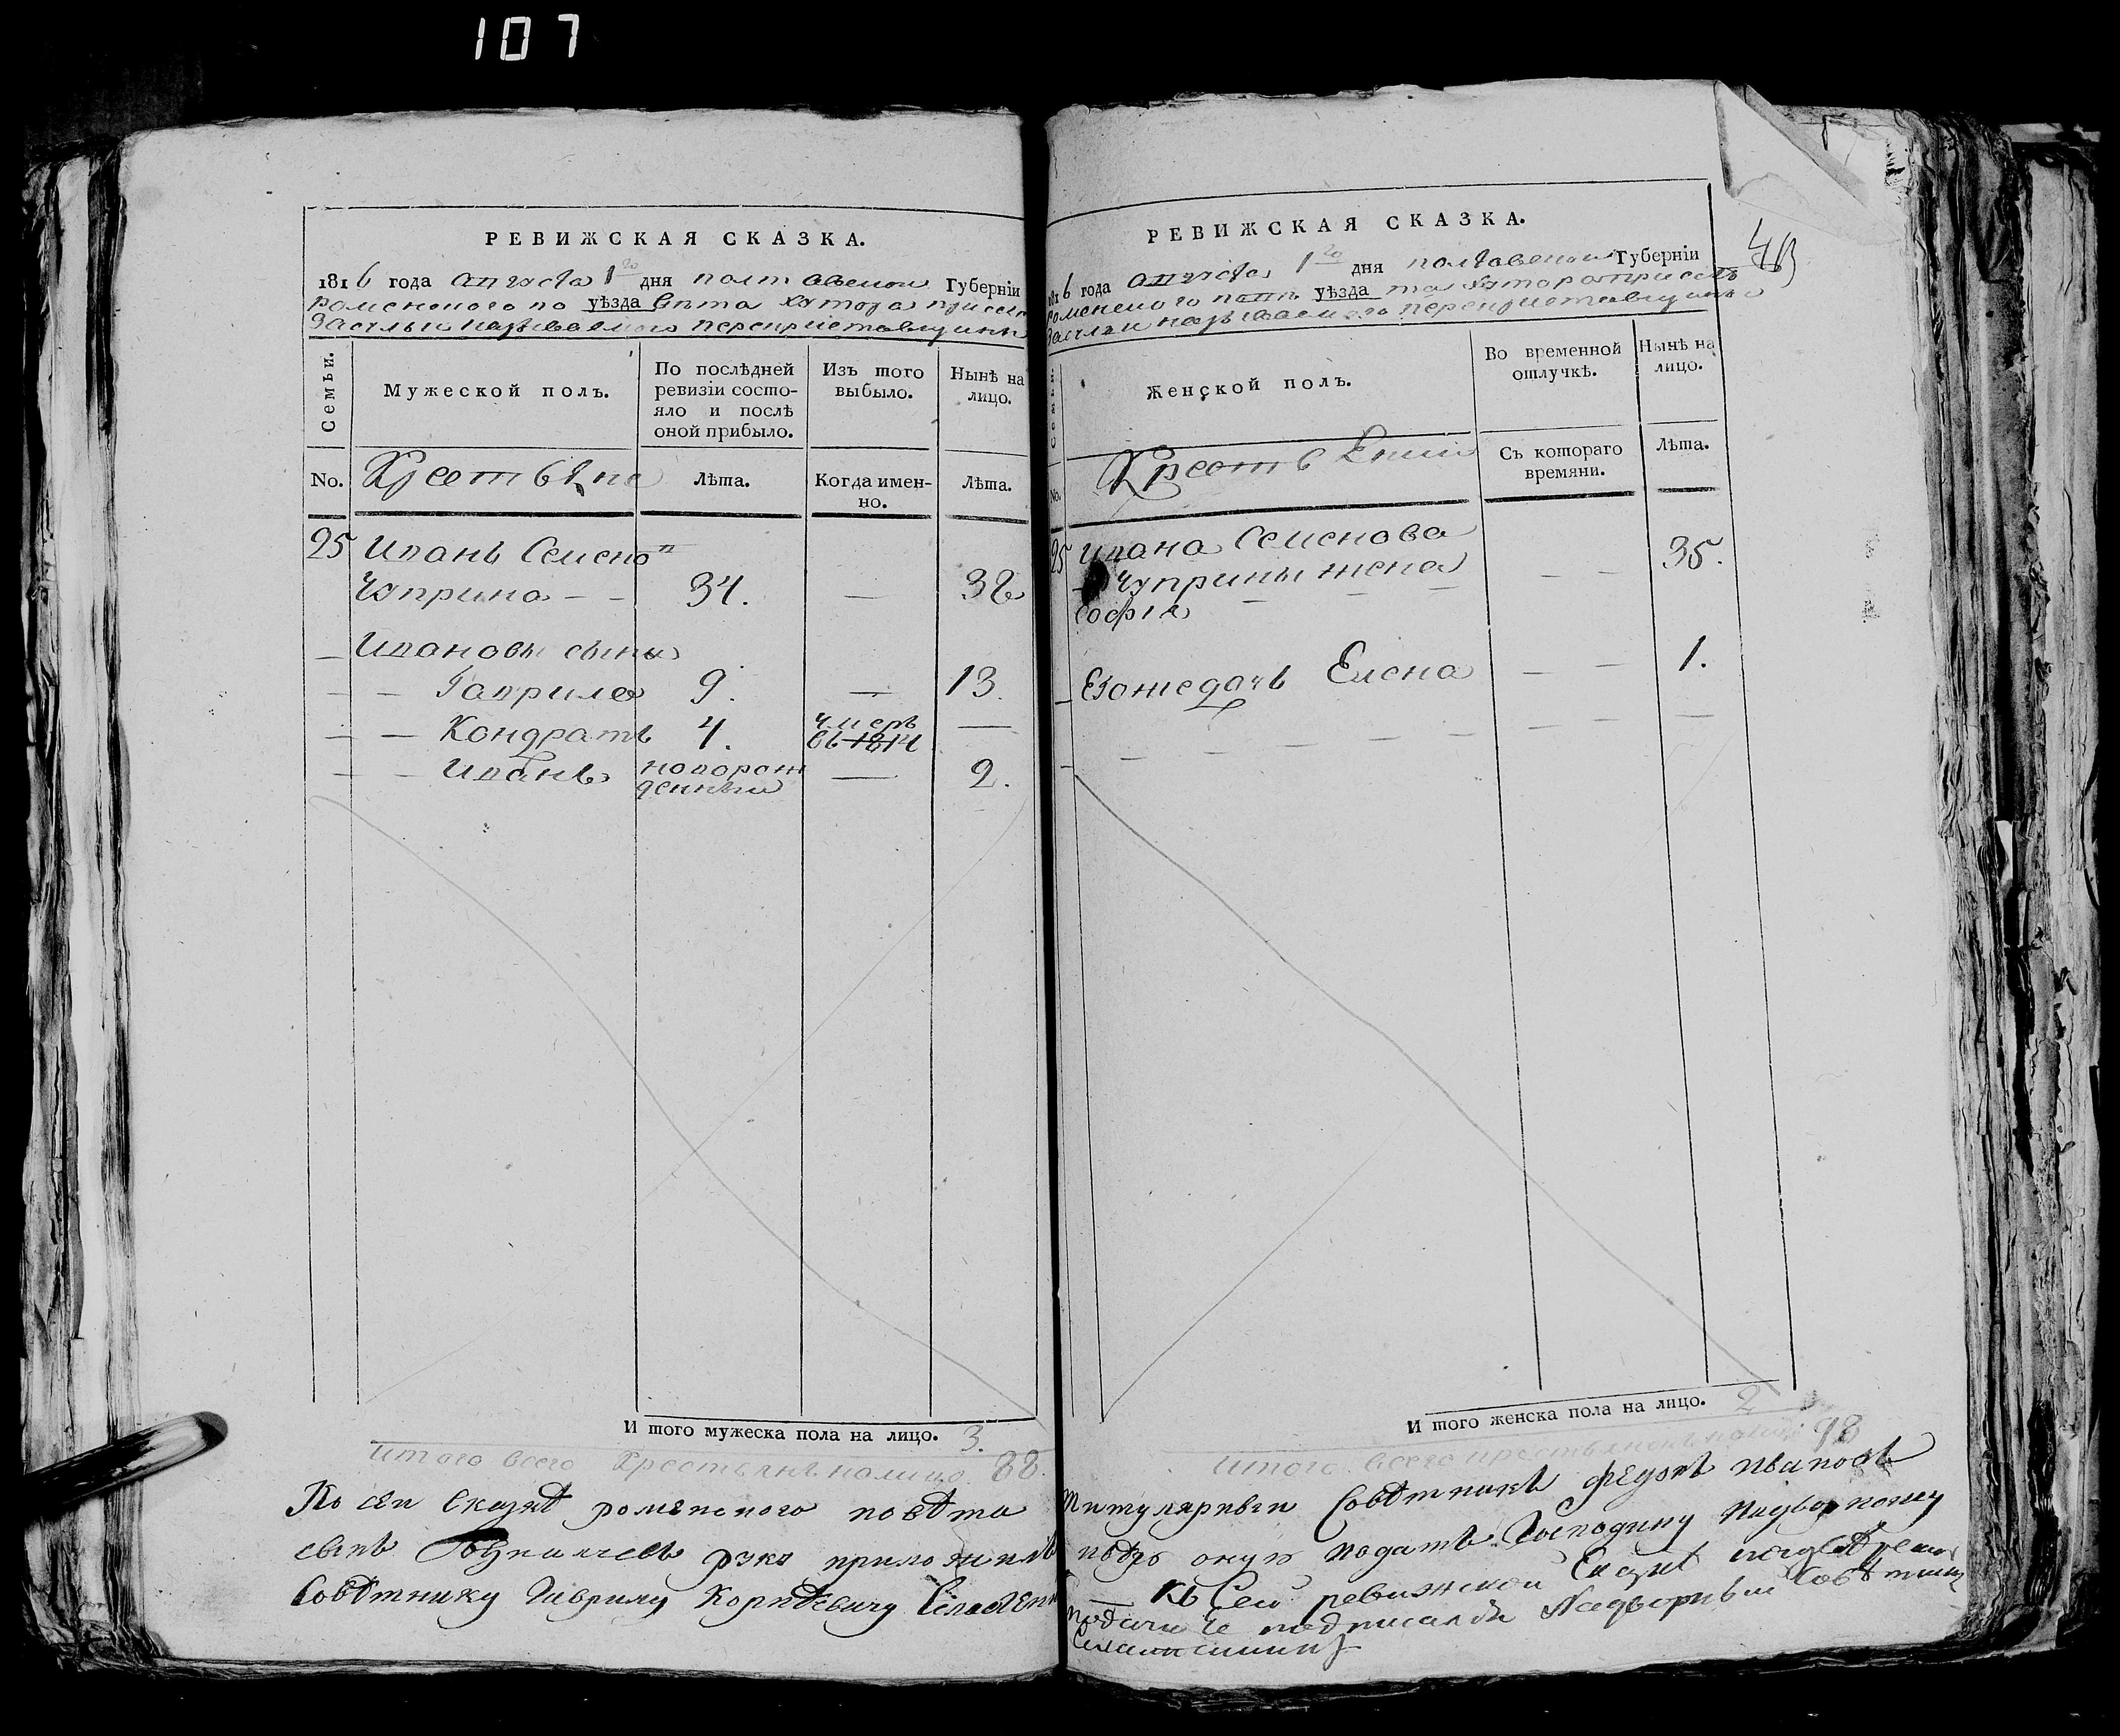 107
РЕВИЖСКАЯ СКАЗКА.
1816 года августа 1го дня полтавской Губерніи
роменского по уѣзда вѣта хутора при селѣ
Засульи называемого
Семьи.
Мужеской полъ.
По послѣдней ревизіи состояло и послѣ оной прибыло.
Изъ того выбыло.
Нынѣ на лицо.
No.
Крестьяне
Лѣта.
Когда именно.
Лѣта.
25 Иванъ Семеновъ
Чуприна — — 34. — 38
— Ивановы сыны
— — Гаврило 9. — 13.
— — Кондратъ 4. умеръ въ 1814 —
— — Иванъ новорожденный — 2.
И того мужеска пола на лицо. 3.
итого всего крестьянъ налицо 88.
По сей Сказкѣ роменского повѣта
сынъ руку приложилъ
Совѣтнику Гаврилу Корнѣевичу
РЕВИЖСКАЯ СКАЗКА.
1816 года августа 1го дня полтавской Губерніи
роменского пов уѣзда та хутора при селѣ
Засульи называемого
Семьи.
Женской полъ.
Во временной отлучкѣ.
Нынѣ на лицо.
No.
Крестьянки
Съ котораго времяни.
Лѣта.
25 Ивана Семенова
Чуприны жена
Софія — — 35.
— Евожедочь Елена — — 1.
И того женска пола на лицо. 2
итого всего 98
Титулярный Совѣтникъ Федоръ Ивановъ
оную подать Господину Надворному
Къ Сей ревижской Сказкѣ
подписался Надворный Совѣтникъ